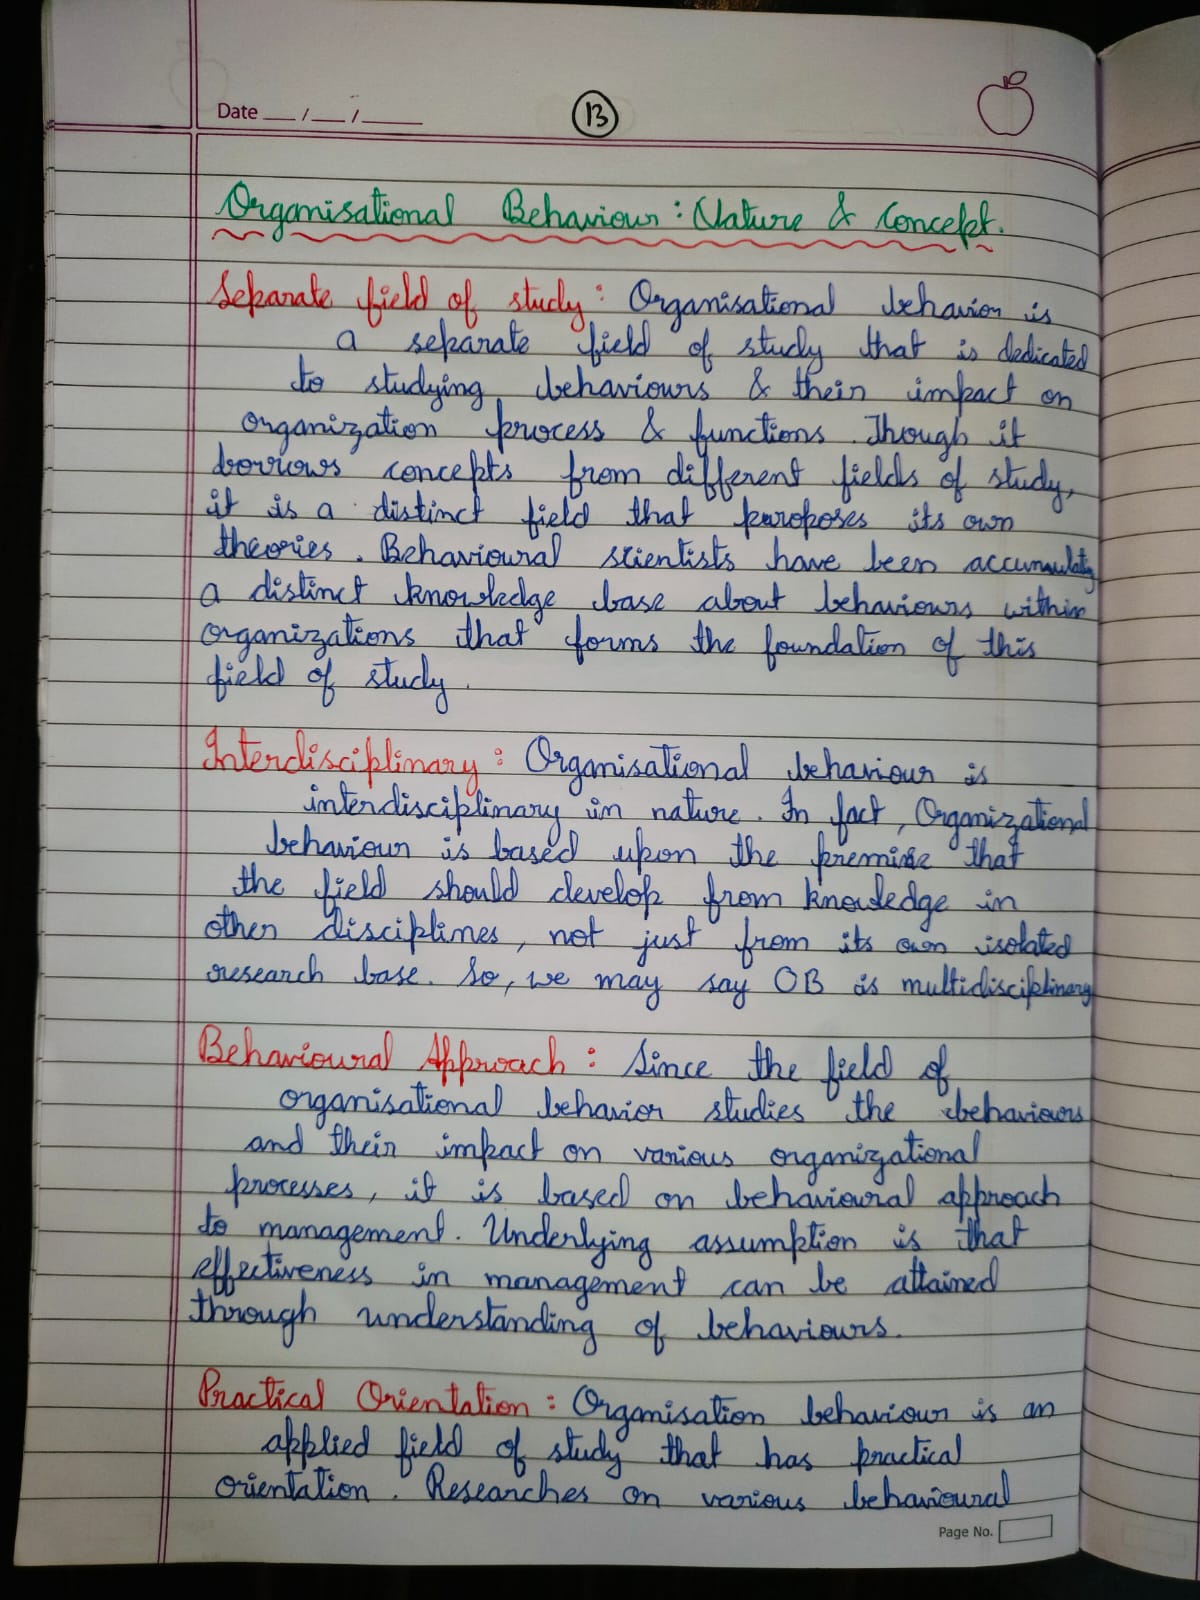 Date __/__/____
13
Organisational Behaviour : Nature & Concept.
Separate field of study : Organisational behavior is
a separate field of study that is dedicated
to studying behaviours & their impact on
organization process & functions. Though it
borrows concepts from different fields of study,
it is a distinct field that puroposes its own
theories. Behavioural scientists have been accumulating
a distinct knowledge base about behaviours within
organizations that forms the foundation of this
field of study.
Interdisciplinary : Organisational behaviour is
interdisciplinary in nature. In fact, Organizational
behaviour is based upon the premise that
the field should develop from knowledge in
other disciplines, not just from its own isolated
research base. So, we may say OB is multidisciplinary
Behavioural Approach : Since the field of
organisational behavior studies the behaviours
and their impact on various organizational
processes, it is based on behavioural approach
to management. Underlying assumption is that
effectiveness in management can be attained
through understanding of behaviours.
Practical Orientation : Organisation behaviour is an
applied field of study that has practical
orientation. Researches on various behavioural
Page No.